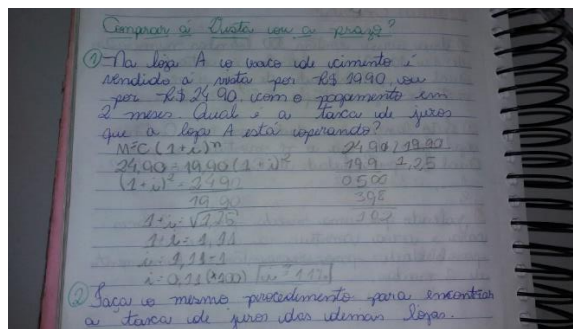 Comprar á Vista ou a prazo?
① Na loja A o saco de cimento é
vendido a vista por R$ 19,90, ou
por R$ 24,90, com o pagamento em
2 meses. Qual é a taxa de juros
que a loja A está operando?
M=C.(1+i)ⁿ 24,90 / 19,90
24,90 = 19,90 (1+i)² 19,9 1,25
(1+i)² = 24,90 0500
19,90 398
1+i = √1,25
1+i = 1,11
i = 1,11-1
i = 0,11 (*100) i = 11%
② Faça o mesmo procedimento para encontrar
a taxa de juros das demais lojas.